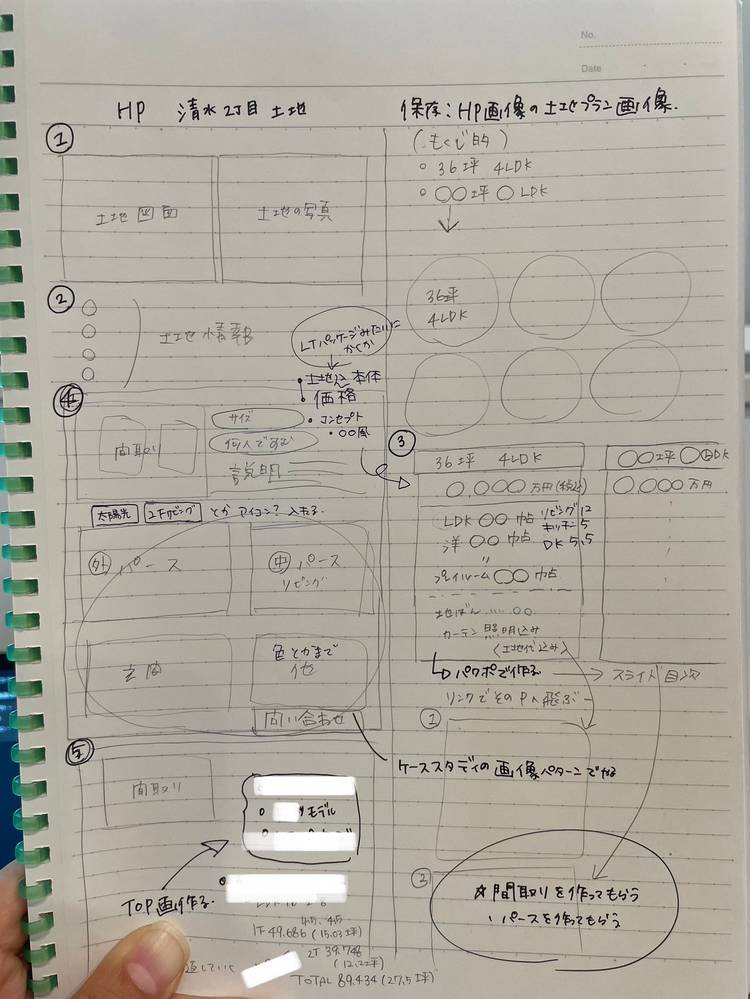 No.
Date
HP 清水2丁目 土地
①
土地図面
土地の写真
②
土地情報
LTパッケージみたいに
かくか
・土地込 本体
価格
・コンセプト
・○○風
④
間取り
サイズ
何人ですむ
説明
太陽光 2Fリビング とか アイコン? 入れる
外 パース
中 パース
リビング
玄関
色とかまで
他
問い合わせ
⑤
間取り
○ モデル
TOP画作る
4.5、4.5
1F 49.686 (15.03坪)
2F 39.748
TOTAL 89.434 (27.5坪)
保存:HP画像の土地プラン画像.
(もくじ的)
○ 36坪 4LDK
○ ○○坪○LDK
36坪
4LDK
③
36坪 4LDK
○,○○○万円(税込)
LDK ○○帖 リビング12
キッチン5
洋 ○○帖 DK 5.5
〃
プレイルーム ○○帖
地ばん ‥‥ ○○
カーテン 照明込み
〈土地代込み〉
○○坪○LDK
○,○○○万円
パワポで作る → スライド目次
リンクでそのPへ飛ぶ
①
ケーススタディの画像パターンでやる
②
☆間取りを作ってもらう
パースを作ってもらう